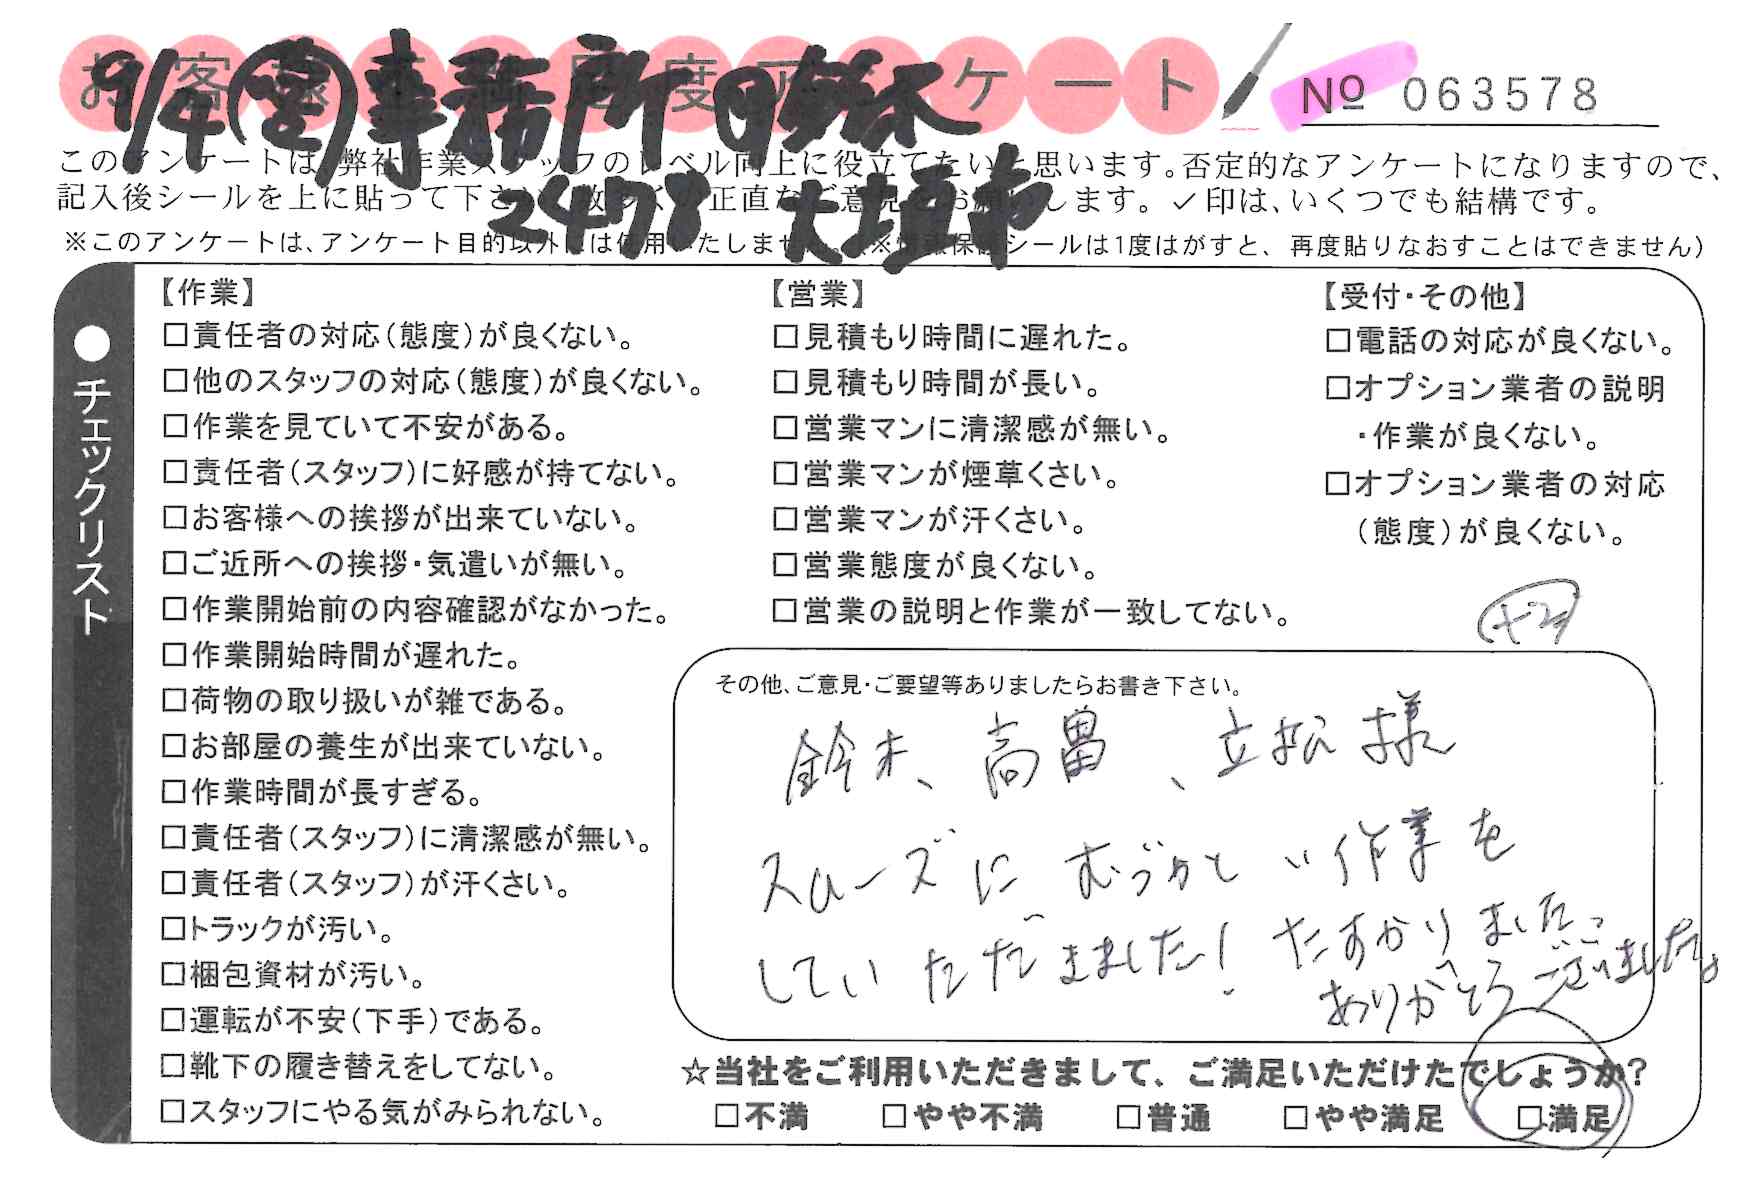 お客様不満足度アンケート
№ 063578
9/4(宮)事務所 日 鈴木
2478 大垣市
このアンケートは、弊社作業スタッフのレベル向上に役立てたいと思います。否定的なアンケートになりますので、
記入後シールを上に貼って下さい。数多くの正直なご意見をお願いします。✓印は、いくつでも結構です。
※このアンケートは、アンケート目的以外には使用いたしません。(※情報保護シールは1度はがすと、再度貼りなおすことはできません)
●チェックリスト
【作業】
□責任者の対応(態度)が良くない。
□他のスタッフの対応(態度)が良くない。
□作業を見ていて不安がある。
□責任者(スタッフ)に好感が持てない。
□お客様への挨拶が出来ていない。
□ご近所への挨拶・気遣いが無い。
□作業開始前の内容確認がなかった。
□作業開始時間が遅れた。
□荷物の取り扱いが雑である。
□お部屋の養生が出来ていない。
□作業時間が長すぎる。
□責任者(スタッフ)に清潔感が無い。
□責任者(スタッフ)が汗くさい。
□トラックが汚い。
□梱包資材が汚い。
□運転が不安(下手)である。
□靴下の履き替えをしてない。
□スタッフにやる気がみられない。
【営業】
□見積もり時間に遅れた。
□見積もり時間が長い。
□営業マンに清潔感が無い。
□営業マンが煙草くさい。
□営業マンが汗くさい。
□営業態度が良くない。
□営業の説明と作業が一致してない。
【受付・その他】
□電話の対応が良くない。
□オプション業者の説明
・作業が良くない。
□オプション業者の対応
(態度)が良くない。
その他、ご意見・ご要望等ありましたらお書き下さい。
鈴木、高畠、立松様
スムーズにむづかしい作業を
していただきました! たすかりました。
ありがとうございました。
☆当社をご利用いただきまして、ご満足いただけたでしょうか?
□不満 □やや不満 □普通 □やや満足 □満足